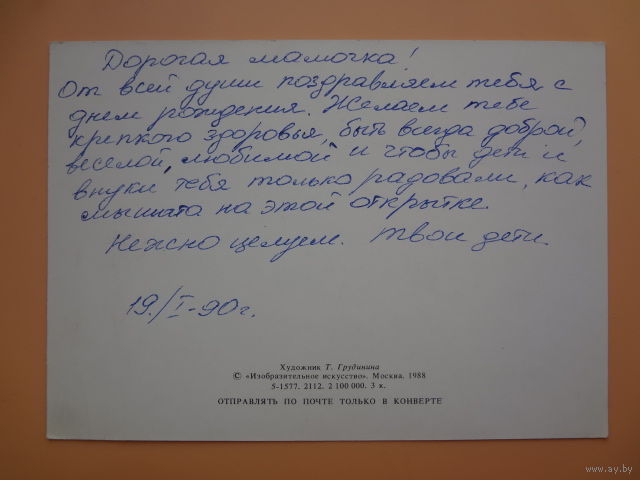 Дорогая мамочка!
От всей души поздравляем тебя с
днем рождения. Желаем тебе
крепкого здоровья, быть всегда доброй,
веселой, любимой и чтобы дети и
внуки тебя только радовали, как
мышата на этой открытке.
Нежно целуем. Твои дети.
19./I-90г.
Художник Т. Грудинина
© «Изобразительное искусство». Москва. 1988
5-1577. 2112. 2 100 000. 3 к.
ОТПРАВЛЯТЬ ПО ПОЧТЕ ТОЛЬКО В КОНВЕРТЕ
www.ay.by